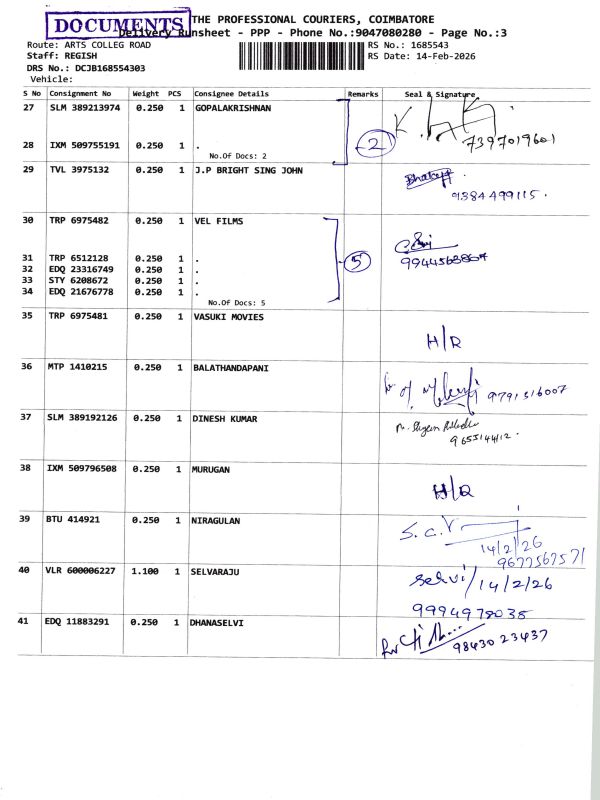 DOCUMENTS
THE PROFESSIONAL COURIERS, COIMBATORE
Delivery Runsheet - PPP - Phone No.:9047080280 - Page No.:3
Route: ARTS COLLEG ROAD
RS No.: 1685543
Staff: REGISH
RS Date: 14-Feb-2026
DRS No.: DCJB168554303
Vehicle:
S No Consignment No Weight PCS Consignee Details Remarks Seal & Signature
27 SLM 389213974 0.250 1 GOPALAKRISHNAN
7397019601
28 IXM 509755191 0.250 1 .
2
No.Of Docs: 2
29 TVL 3975132 0.250 1 J.P BRIGHT SING JOHN
9384499115.
30 TRP 6975482 0.250 1 VEL FILMS
31 TRP 6512128 0.250 1 .
5
32 EDQ 23316749 0.250 1 .
33 STY 6208672 0.250 1 .
34 EDQ 21676778 0.250 1 .
No.Of Docs: 5
35 TRP 6975481 0.250 1 VASUKI MOVIES
H/R
36 MTP 1410215 0.250 1 BALATHANDAPANI
9791516007
37 SLM 389192126 0.250 1 DINESH KUMAR
38 IXM 509796508 0.250 1 MURUGAN
H/R
39 BTU 414921 0.250 1 NIRAGULAN
S.C.V
14/2/26
9677567571
40 VLR 600006227 1.100 1 SELVARAJU
Selvi/14/2/26
9994978035
41 EDQ 11883291 0.250 1 DHANASELVI
98430 23437